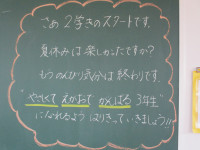 さあ 2学きのスタートです。
夏休みは楽しかったですか?
もうのんびり気分は終わりです。
"やさしくて えがおで がんばる 3年生"
になれるよう はりきっていきましょう!!